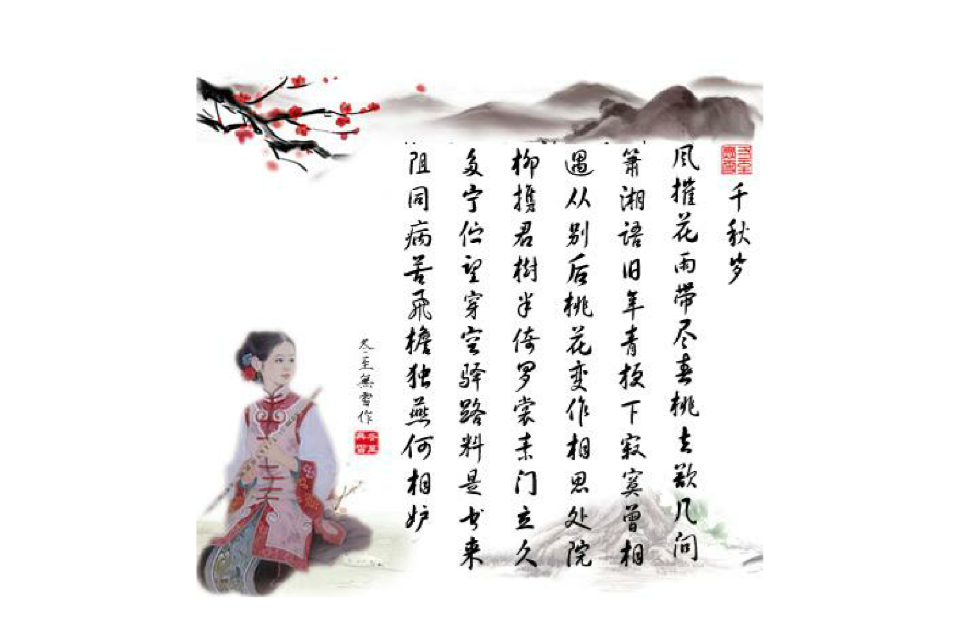 千秋岁
风摧花雨带尽春桃去歎几问
箫湘语旧年青梗下寂寞曾相
遇从别后桃花变作相思处院
柳携君樹半倚罗裳素门立久
多宁伫望穿空驿路料是书来
阻同病苦飛檐独燕何相妒
冬至無雪作